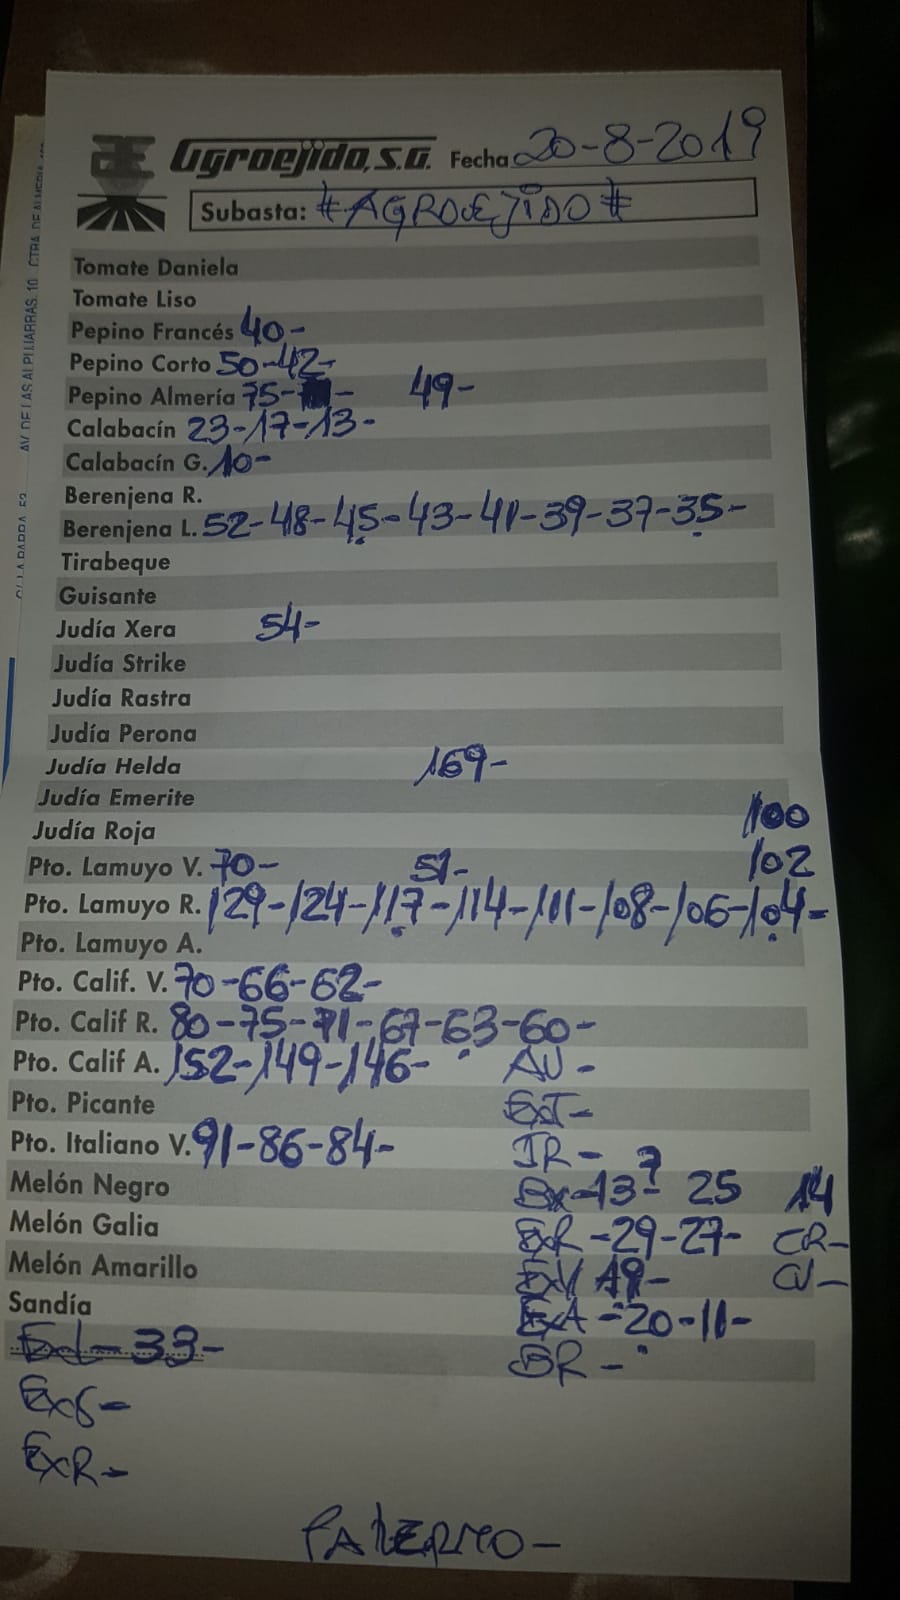 Agroejido, S.A. Fecha 20-8-2019
Subasta: #AGROEJIDO#
Tomate Daniela
Tomate Liso
Pepino Francés 40-
Pepino Corto 50-42-
Pepino Almería 75- - 49-
Calabacín 23-17-13-
Calabacín G. 10-
Berenjena R.
Berenjena L. 52-48-45-43-41-39-37-35-
Tirabeque
Guisante
Judía Xera 54-
Judía Strike
Judía Rastra
Judía Perona
Judía Helda 169-
Judía Emerite
Judía Roja 100
Pto. Lamuyo V. 70- 51- 102
Pto. Lamuyo R. 129-124-117-114-111-108-106-104-
Pto. Lamuyo A.
Pto. Calif. V. 70-66-62-
Pto. Calif R. 80-75-71-67-63-60-
Pto. Calif A. 152-149-146- AV-
Pto. Picante ExT-
Pto. Italiano V. 91-86-84- IR- 7
Melón Negro Bx-13- 25 14
Melón Galia ExR-29-27- CR-
Melón Amarillo ExV 19- CV-
Sandía ExA-20-11-
ExL-33- BR-
ExS-
ExR-
PALERMO-
AV. DE LAS ALPUJARRAS, 10